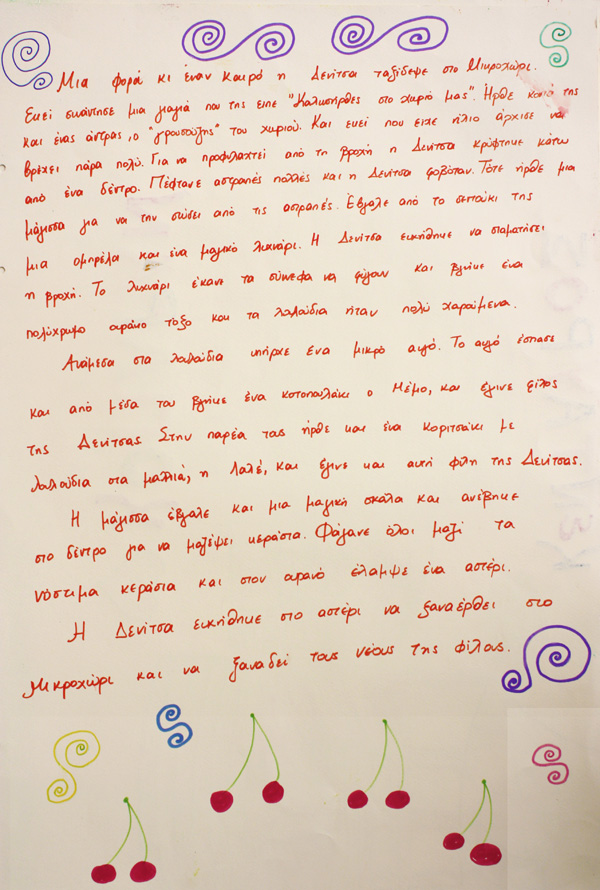 Μια φορά κι έναν καιρό η Δενίτσα ταξίδεψε στο Μικροχώρι.
Εκεί συνάντησε μια γιαγιά που της είπε "Καλωσήρθες στο χωριό μας". Ήρθε κοντά της
και ένας άντρας, ο "γρουσούζης" του χωριού. Και εκεί που είχε ήλιο άρχισε να
βρέχει πάρα πολύ. Για να προφυλαχτεί από τη βροχή η Δενίτσα κρύφτηκε κάτω
από ένα δέντρο. Πέφτανε αστραπές πολλές και η Δενίτσα φοβόταν. Τότε ήρθε μια
μάγισσα για να την σώσει από τις αστραπές. Έβγαλε από το σεντούκι της
μια ομπρέλα και ένα μαγικό λυχνάρι. Η Δενίτσα ευχήθηκε να σταματήσει
η βροχή. Το λυχνάρι έκανε τα σύννεφα να φύγουν και βγήκε ένα
πολύχρωμο ουράνιο τόξο και τα λουλούδια ήταν πολύ χαρούμενα.
Ανάμεσα στα λουλούδια υπήρχε ένα μικρό αυγό. Το αυγό έσπασε
και από μέσα του βγήκε ένα κοτοπουλάκι ο Μέμο, και έγινε φίλος
της Δενίτσας. Στην παρέα τους ήρθε και ένα κοριτσάκι με
λουλούδια στα μαλλιά, η Λαλέ, και έγινε και αυτή φίλη της Δενίτσας.
Η μάγισσα έβγαλε και μια μαγική σκάλα και ανέβηκε
στο δέντρο για να μαζέψει κεράσια. Φάγανε όλοι μαζί τα
νόστιμα κεράσια και στον ουρανό έλαμψε ένα αστέρι.
Η Δενίτσα ευχήθηκε στο αστέρι να ξαναέρθει στο
Μικροχώρι και να ξαναδεί τους νέους της φίλους.